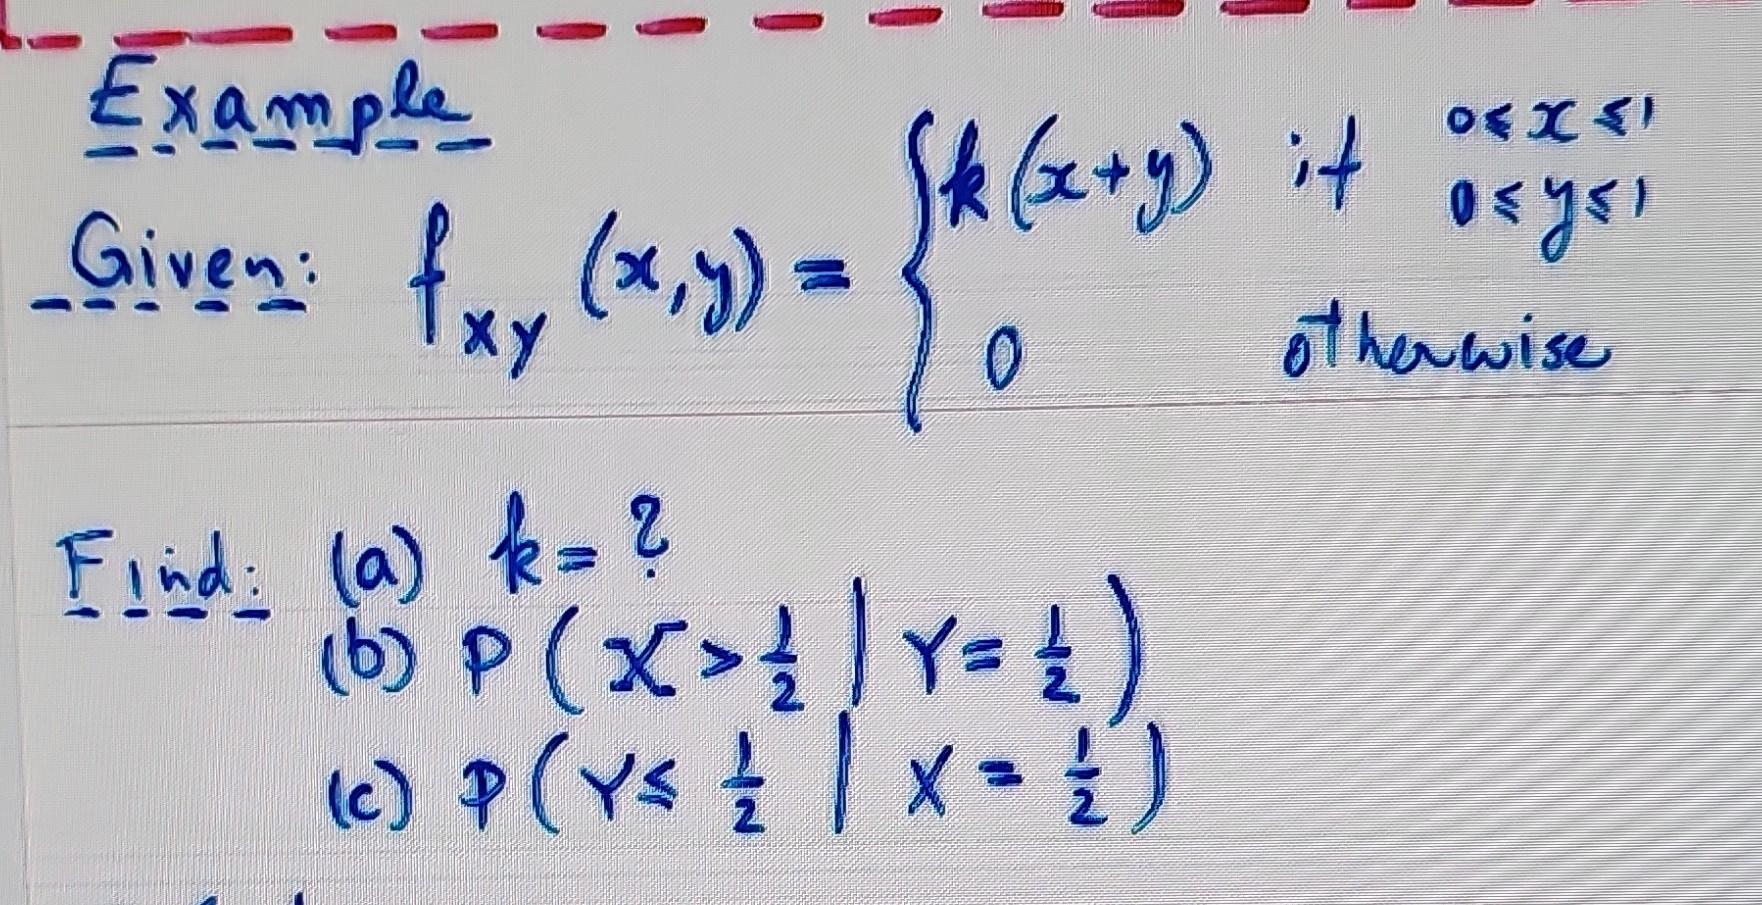 Example
Given: f_XY (x,y) = { k(x+y) if 0≤x≤1 0≤y≤1
0 otherwise
Find: (a) k = ?
(b) P(X > 1/2 | Y = 1/2)
(c) P(Y ≤ 1/2 | X = 1/2)